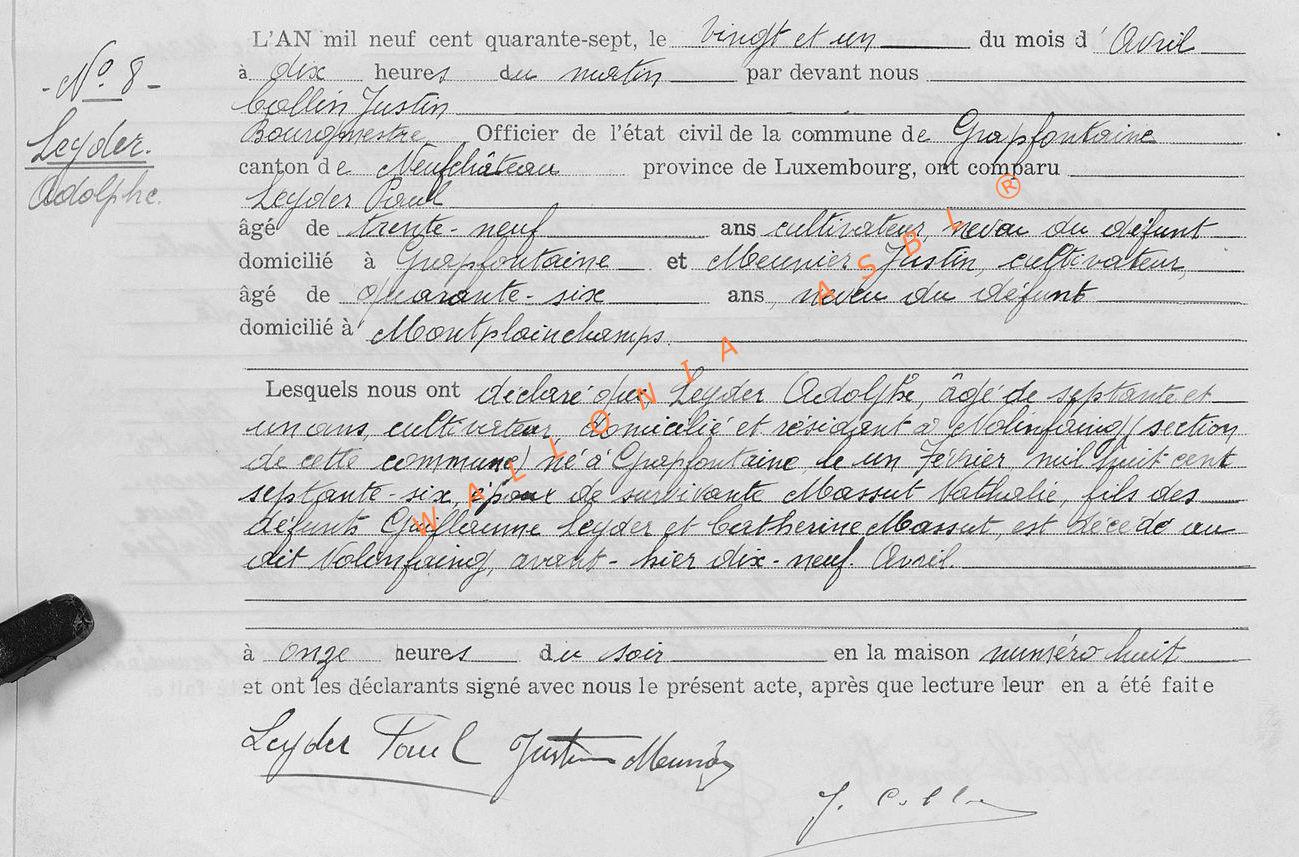 L'AN mil neuf cent quarante-sept, le vingt et un du mois d'Avril
- N° 8 -
à dix heures du matin par devant nous
Collin Justin
Leyder.
Bourgmestre Officier de l'état civil de la commune de Grapfontaine
canton de Neufchâteau province de Luxembourg, ont comparu
Adolphe.
Leyder Paul
âgé de trente-neuf ans cultivateur, neveu du défunt
domicilié à Grapfontaine et Meunier Justin, cultivateur,
âgé de quarante-six ans, neveu du défunt
domicilié à Montplainchamps.
Lesquels nous ont déclaré que Leyder Adolphe, âgé de septante et
un ans, cultivateur, domicilié et résidant à Nolinfaing (section
de cette commune) né à Grapfontaine, le un Février mil huit cent
septante-six, époux de survivante Massut Nathalie, fils des
défunts Guillaume Leyder et Catherine Massut, est décédé au
dit Nolinfaing, avant-hier dix-neuf Avril.
à onze heures du soir en la maison numéro huit
et ont les déclarants signé avec nous le présent acte, après que lecture leur en a été faite
Leyder Paul Justin Meunier
J. Collin
WALLONIA ASBL ®